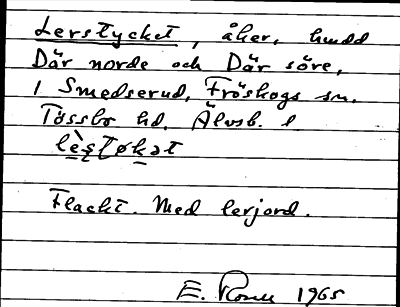 Lerstycket, åker, hudd
Där norde och Där söre,
i Smedserud, Fröskogs sn.
Tössbo hd. Älvsb. l
Flackt. Med lerjord.
E. 1965